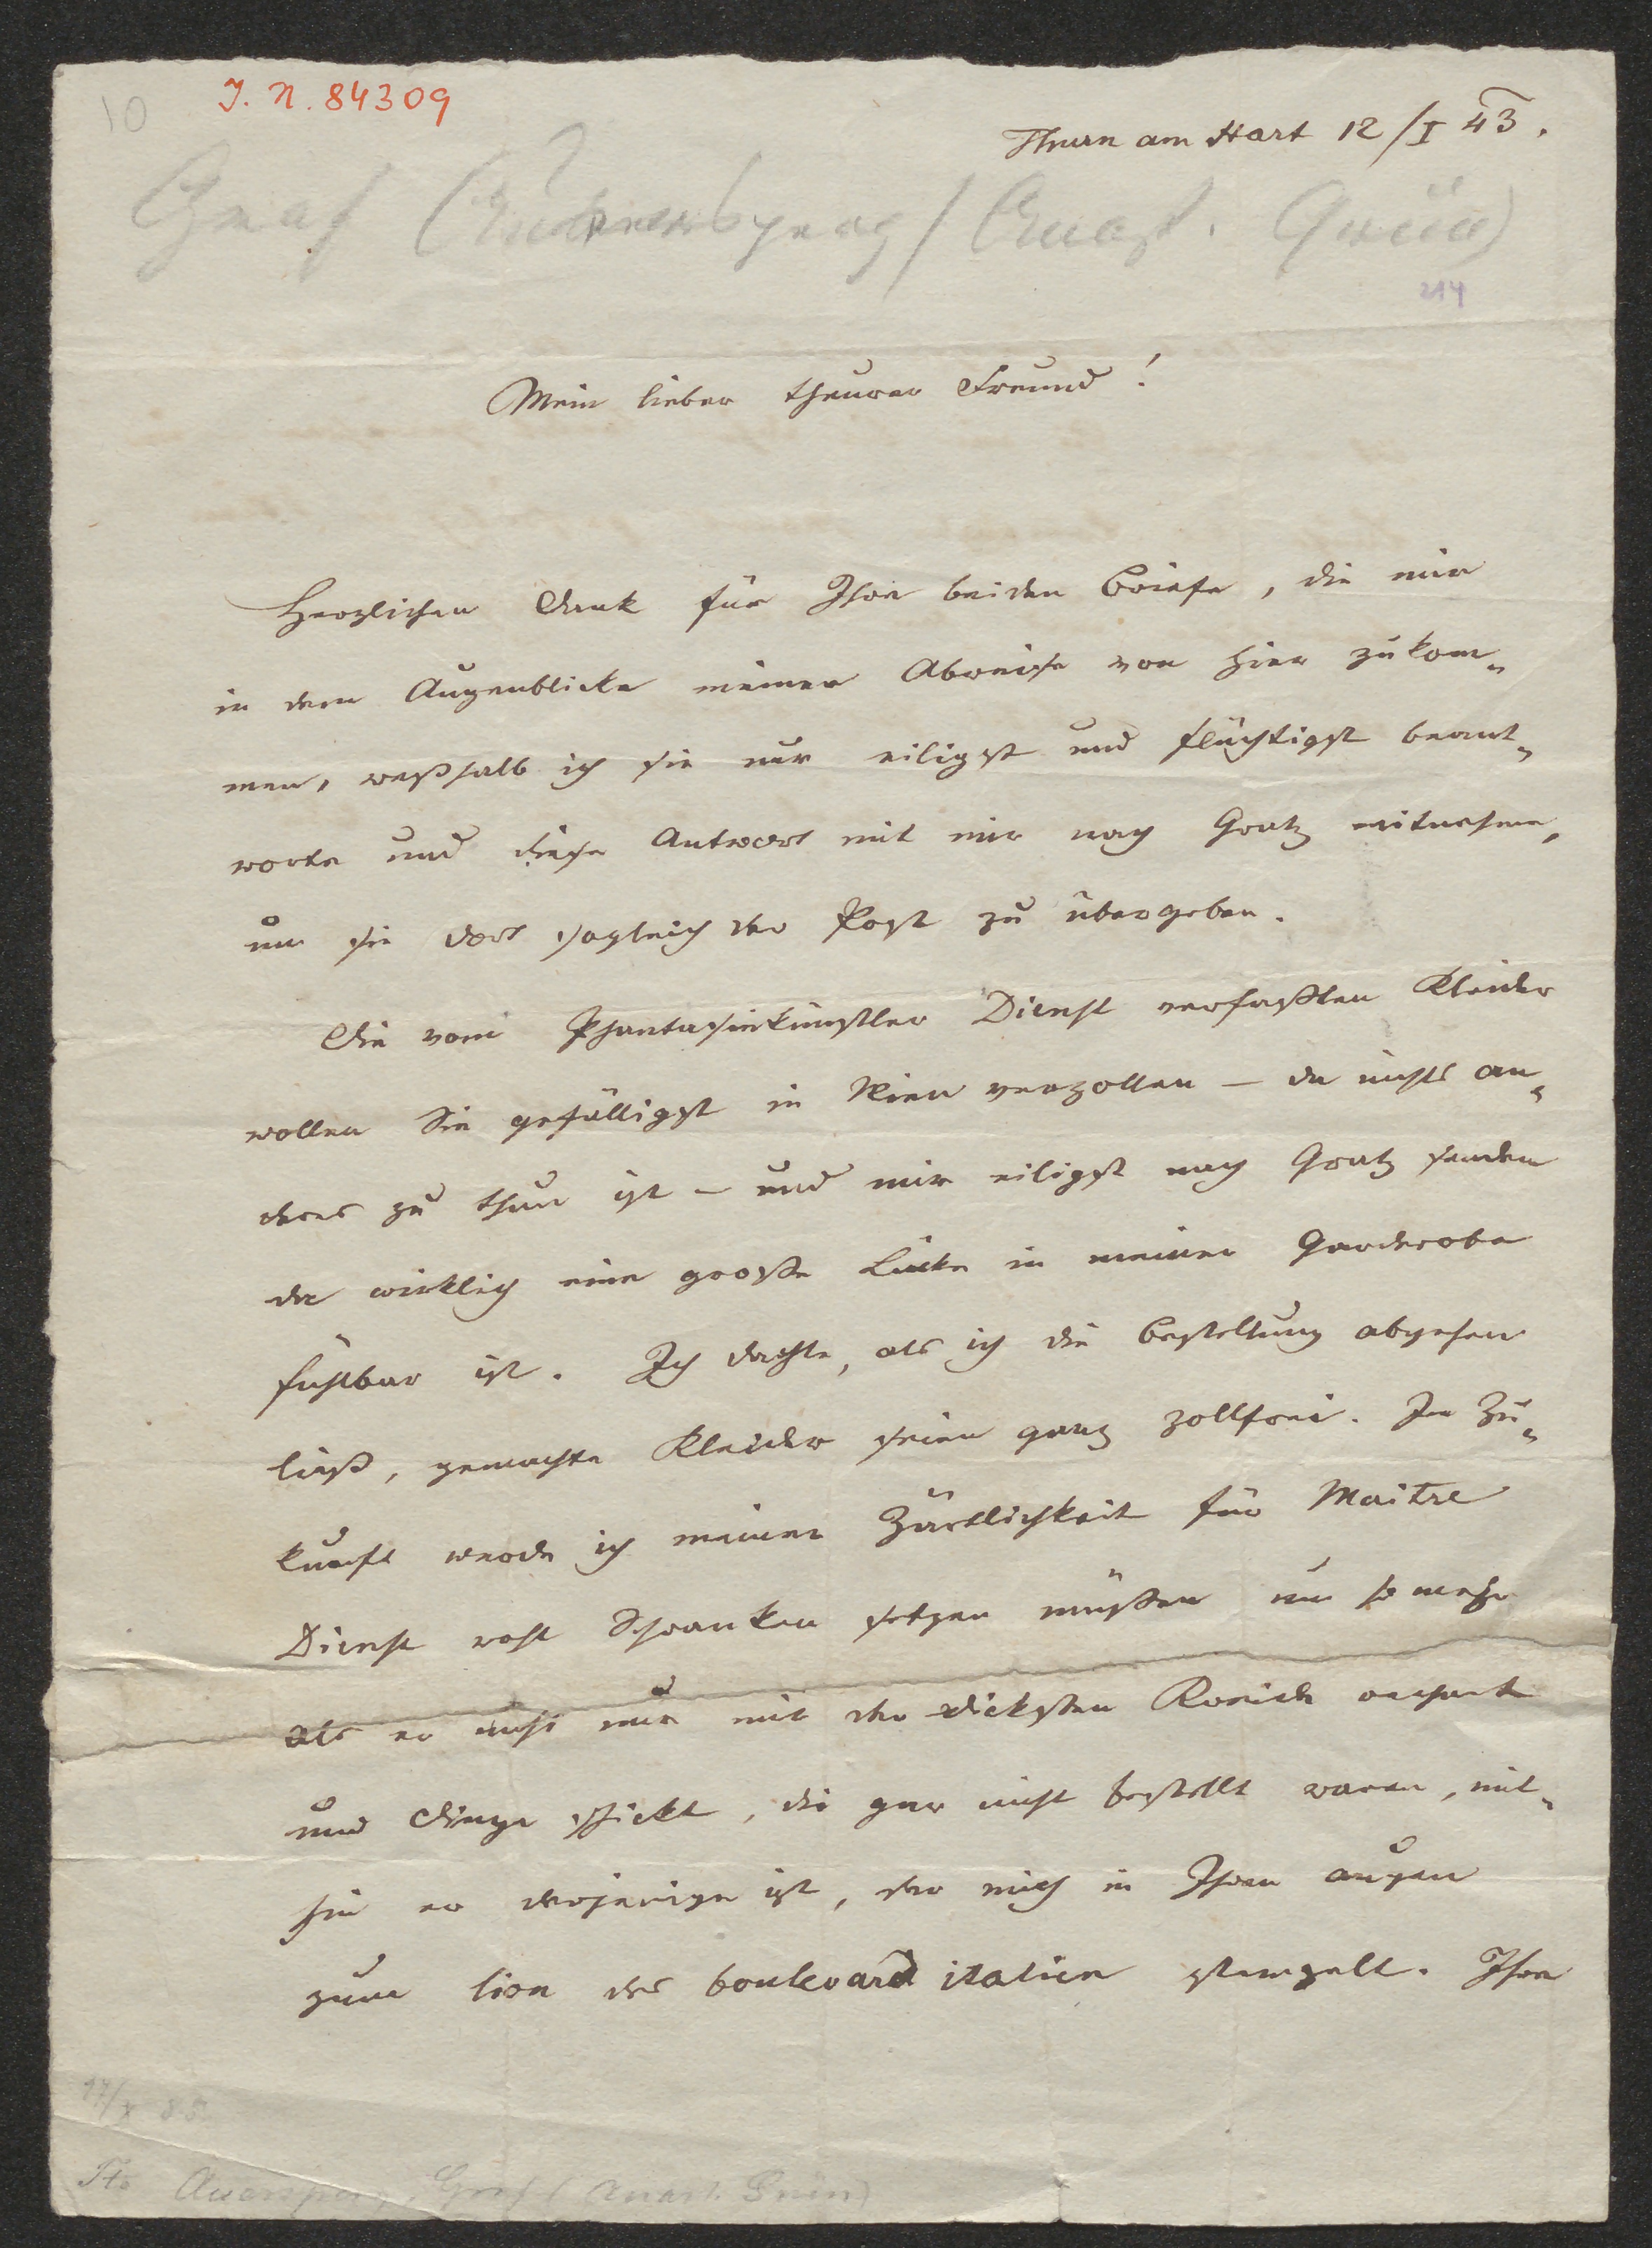 10
J. N. 84309
Thurn am Hart 12/I 43.
Graf Auersperg (Anast. Grün)
214
Mein lieber theurer Freund!
Herzlichen Dank für Ihre beiden Briefe, die mir
in dem Augenblicke meiner Abreise von hier zukom-
men, weßhalb ich sie nur eiligst und flüchtigst beant-
worte und diese Antwort mit mir nach Gratz mitnehme,
um sie dort sogleich der Post zu übergeben.
Die vom Phantasiekünstler Dienst verfaßten Kleider
wollen Sie gefälligst in Wien verzollen – da nichts an-
deres zu thun ist – und mir eiligst nach Gratz senden
da wirklich eine große Lücke in meiner Garderobe
fühlbar ist. Ich dachte, als ich die Bestellung abgehen
ließ, gemachte Kleider seien ganz zollfrei. In Zu-
kunft werde ich meiner Zärtlichkeit für Maitre
Dienst wohl Schranken setzen müßen um so mehr
als er nicht nur mit der dicksten Kreide rechnet
und Dinge schickt, die gar nicht bestellt waren, mit-
hin er derjenige ist, der mich in Ihren Augen
zum lion des boulevard italien stempelt. Ihre
17/X 85.
Auersperg, Graf (Anast. Grün)